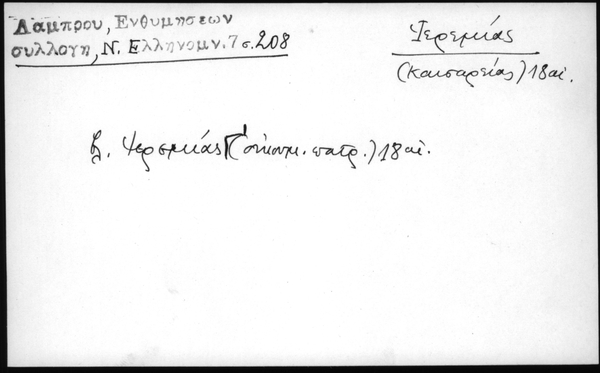 Λαμπρου, Ενθυμησεων
συλλογη, Ν. Ελληνομν. 7 σ. 208
Ἱερεμίας
(Καισαρείας) 18 αἰ.
βλ. Ἱερεμίας Γ' (οἰκουμ. πατρ.) 18 αἰ.